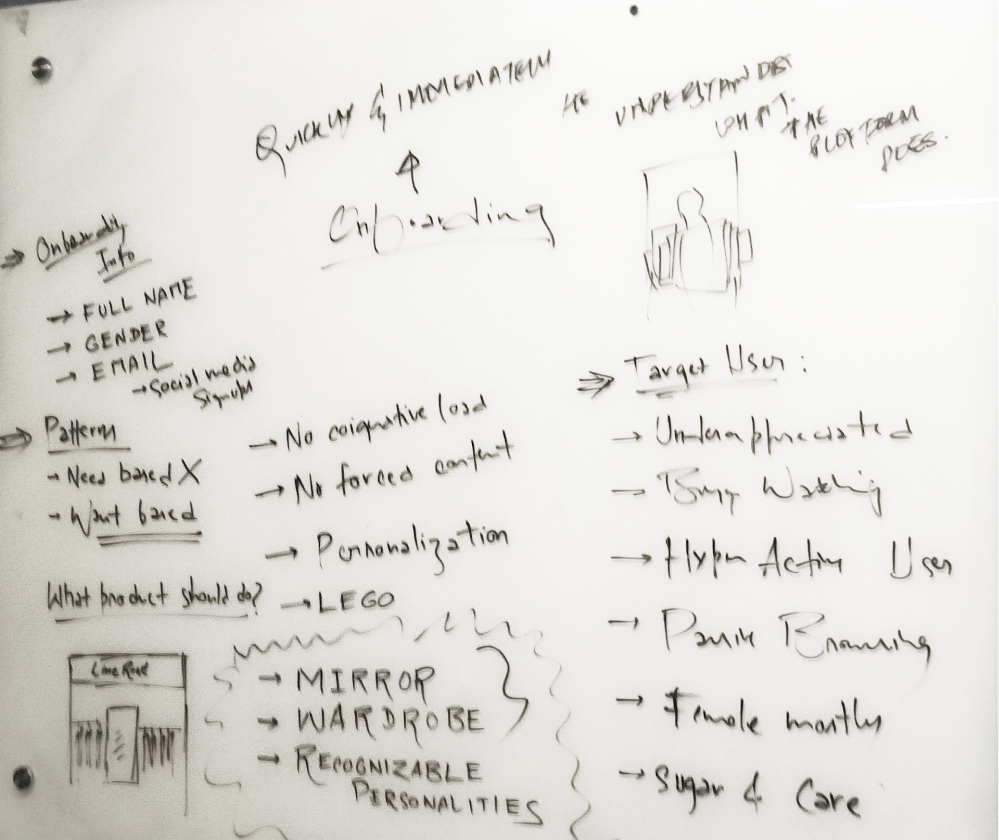 QUICKLY & IMMEDIATELY
HE UNDERSTANDS
WHAT THE
PLATFORM
DOES.
Onboarding
Onboarding
Info
→ FULL NAME
→ GENDER
→ EMAIL
→ Social media
Signups
Pattern
→ Need based X
→ Want based
→ No coignative load
→ No forced content
→ Personalization
→ LEGO
What product should do?
LimeRoad
→ MIRROR
→ WARDROBE
→ RECOGNIZABLE
PERSONALITIES
Target User:
→ Underappreciated
→ Busy Working
→ Hyper Active User
→ Panic Browsing
→ Female mostly
→ Sugar & Care